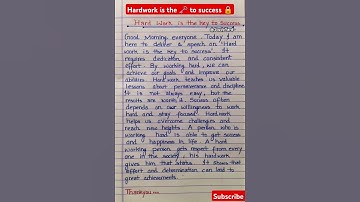 Hardwork is the 🗝️ to success 🔒
Hard Work is the key to Success
(speech)
Good Morning everyone. Today I am
here to deliver a speech on "Hard
work is the key to success". It
requires dedication and consistent
effort. By working hard, we can
achieve our goals and improve our
abilities. Hardwork teaches us valuable
lessons about perseverance and discipline.
It is not always easy, but the
results are worth it. Success often
depends on our willingness to work
hard and stay focused. Hardwork
helps us overcome challenges and
reach new heights. A person, who is
working hard is able to get success
and happiness in life. A hard
working person gets respect from every
one in the society, his hardwork
gives him that status. It shows that
effort and determination can lead to
great achievements.
Thankyou...
Subscribe